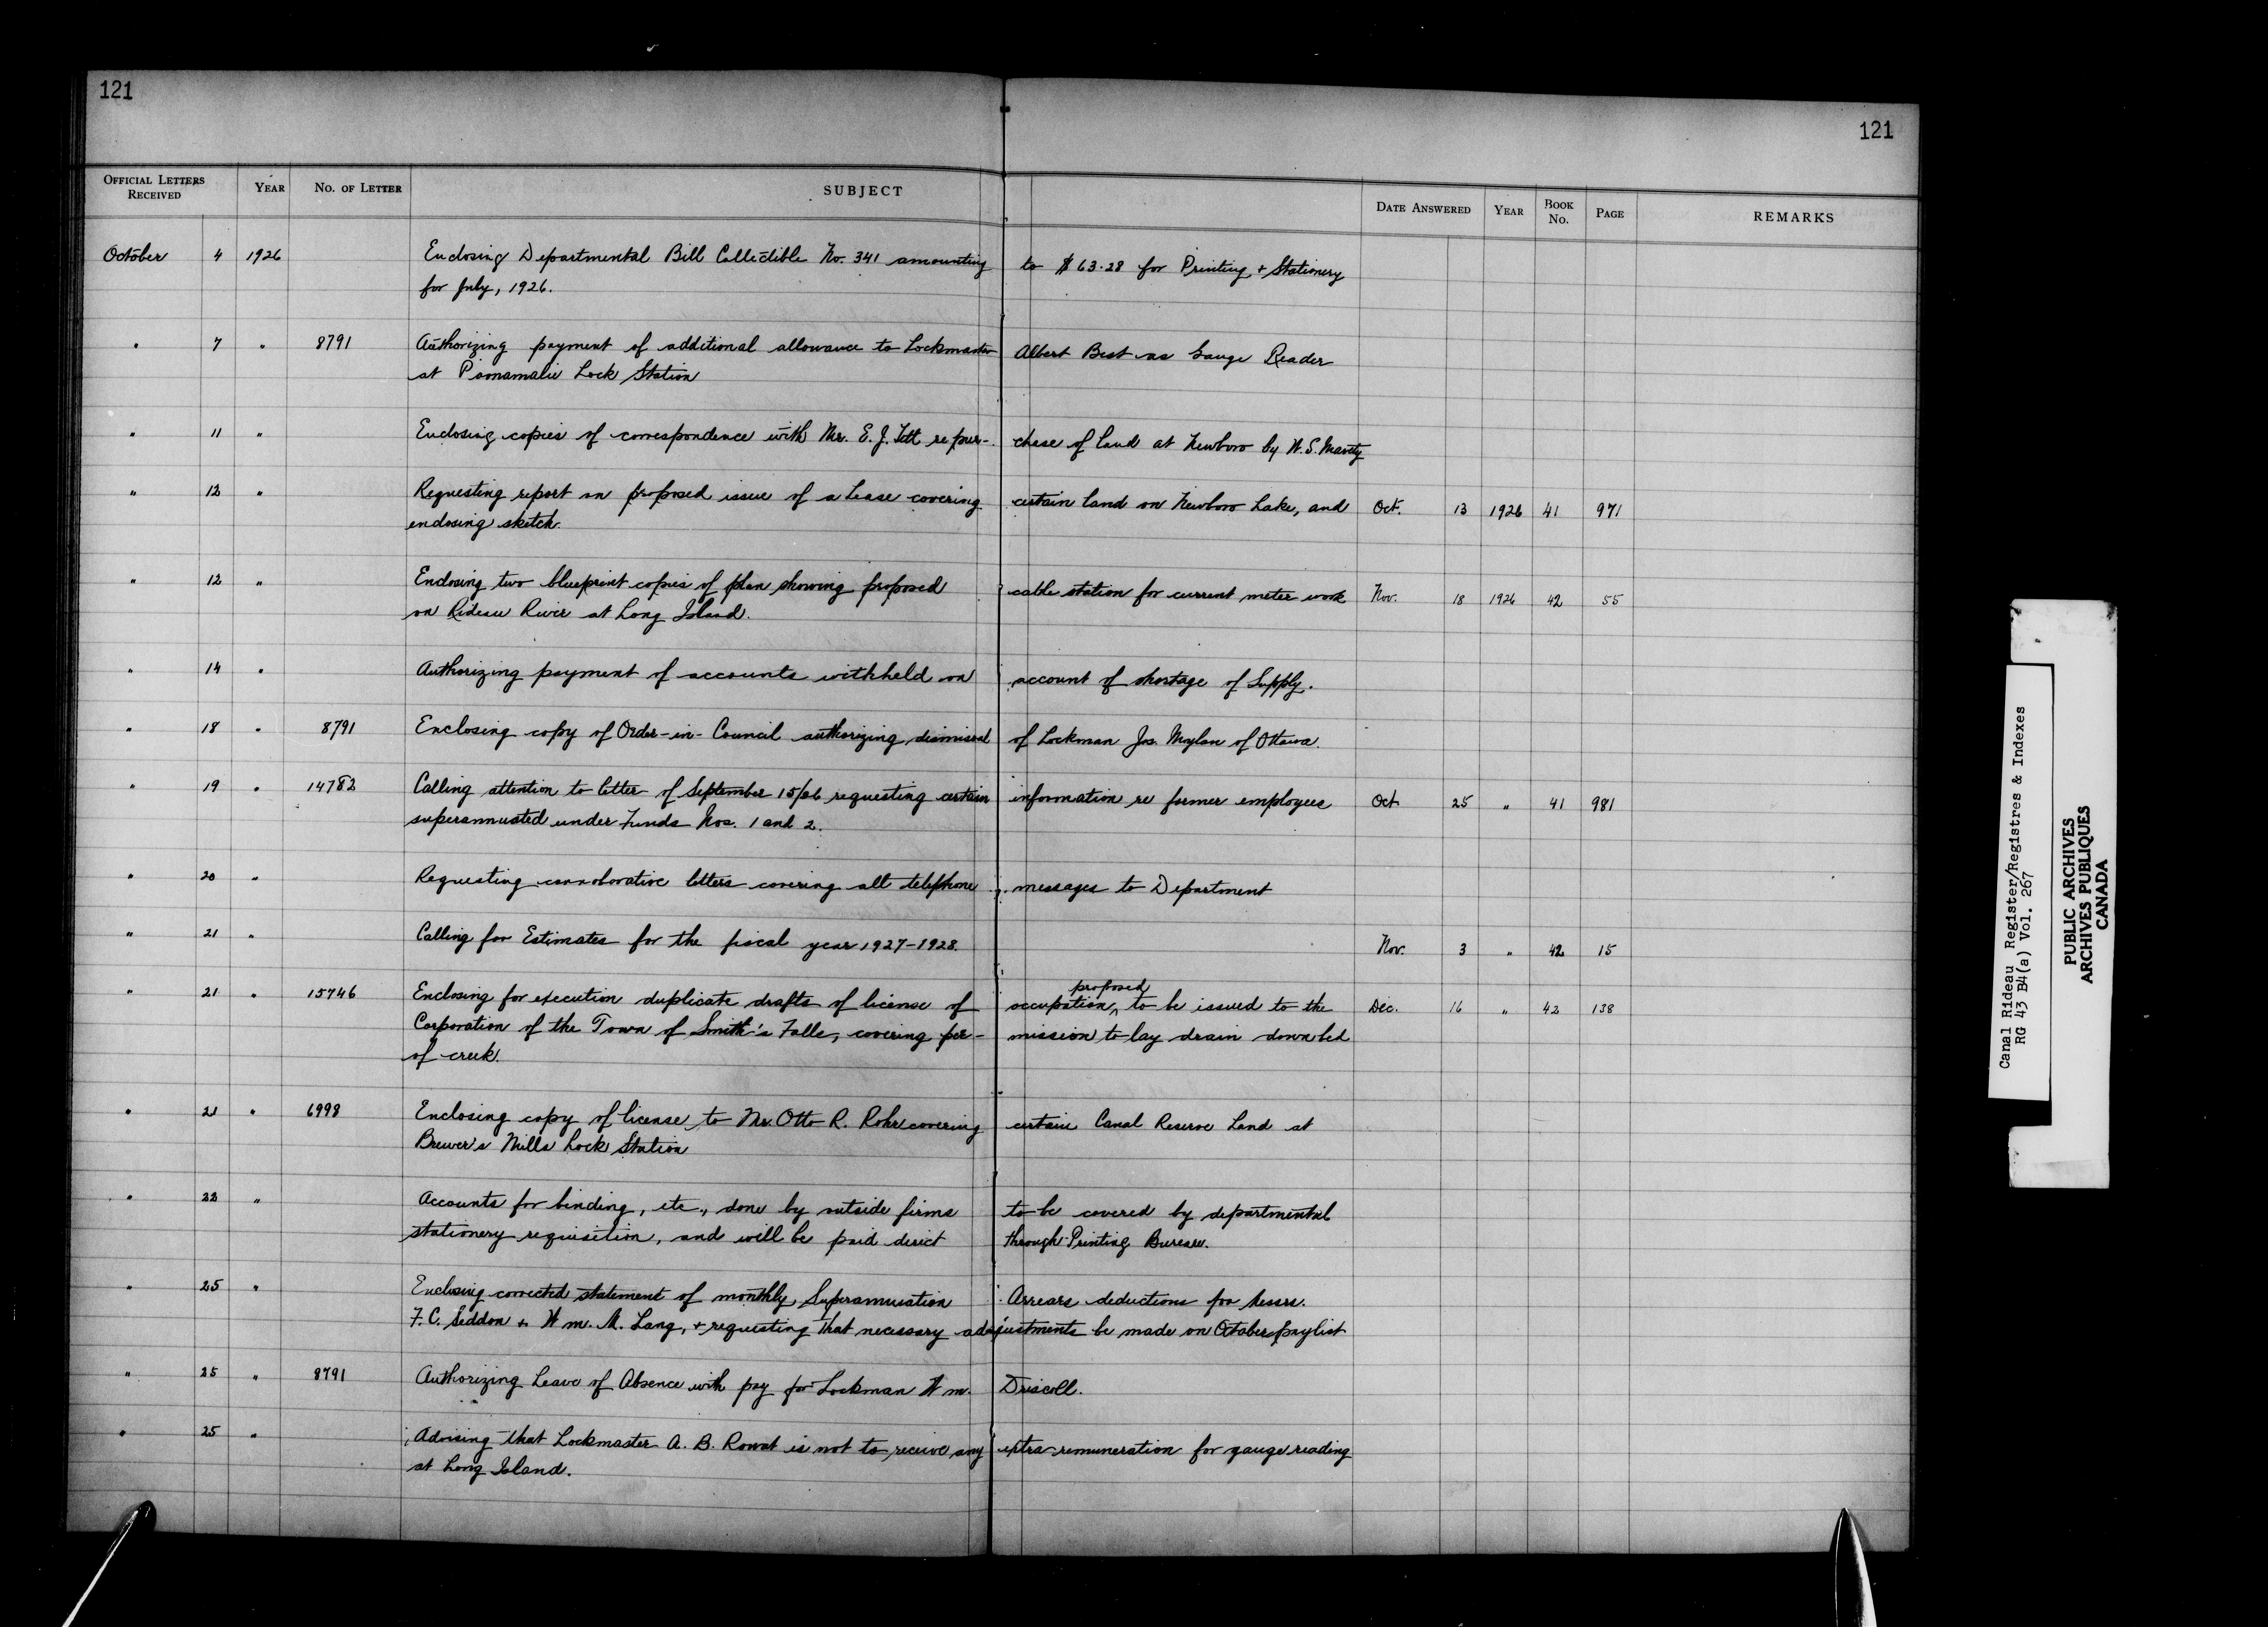 121
121
OFFICIAL LETTERS RECEIVED YEAR NO. OF LETTER SUBJECT DATE ANSWERED YEAR BOOK NO. PAGE REMARKS
October 4 1926 Enclosing Departmental Bill Collectible No. 341 amounting to $63.28 for Printing + Stationery
for July, 1926.
" 7 " 8791 Authorizing payment of additional allowance to Lockmaster Albert Best as Gauge Reader
at Poonamalie Lock Station
" 11 " Enclosing copies of correspondence with Mr. E. J. Tett re pur- chase of land at Newboro by W. S. Mavety
" 12 " Requesting report on proposed issue of a Lease covering certain land on Newboro Lake, and Oct. 13 1926 41 971
enclosing sketch.
" 12 " Enclosing two blueprint copies of plan showing proposed cable station for current meter work Nov. 18 1926 42 55
on Rideau River at Long Island.
" 14 " Authorizing payment of accounts withheld on account of shortage of Supply.
" 18 " 8791 Enclosing copy of Order-in-Council authorizing dismissal of Lockman Jos. Moylan of Ottawa.
" 19 " 14782 Calling attention to letter of September 15/26 requesting certain information re former employees Oct. 25 " 41 981
superannuated under Funds Nos. 1 and 2.
" 20 " Requesting corroborative letters covering all telephone messages to Department
" 21 " Calling for Estimates for the fiscal year 1927-1928. Nov. 3 " 42 15
" 21 " 15746 Enclosing for execution duplicate drafts of license of occupation, proposed to be issued to the Dec. 16 " 42 138
Corporation of the Town of Smith's Falls, covering per- mission to lay drain down bed
of creek.
" 21 " 6998 Enclosing copy of license to Mr. Otto R. Rohr covering certain Canal Reserve Land at
Brewer's Mills Lock Station
" 22 " Accounts for binding, etc., done by outside firms to be covered by departmental
stationery requisition, and will be paid direct through Printing Bureau.
" 25 " Enclosing corrected statement of monthly Superannuation Arrears deductions for Messrs.
F. C. Seddon + Wm. M. Lang, + requesting that necessary adjustments be made on October paylist
" 25 " 8791 Authorizing Leave of Absence with pay for Lockman Wm. Driscoll.
" 25 " Advising that Lockmaster A. B. Rowat is not to receive any extra remuneration for gauge reading
at Long Island.
Canal Rideau Register/Registres & Indexes
RG 43 B4(a) Vol. 267
PUBLIC ARCHIVES
ARCHIVES PUBLIQUES
CANADA